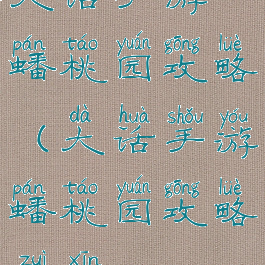 大话手游
pán táo yuán gōng lüè
蟠桃园攻略
dà huà shǒu yóu
（大话手游
pán táo yuán gōng lüè
蟠桃园攻略
zuì xīn